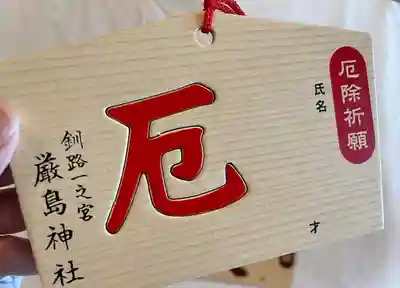 厄除祈願
氏名
才
厄
釧路一之宮
厳島神社